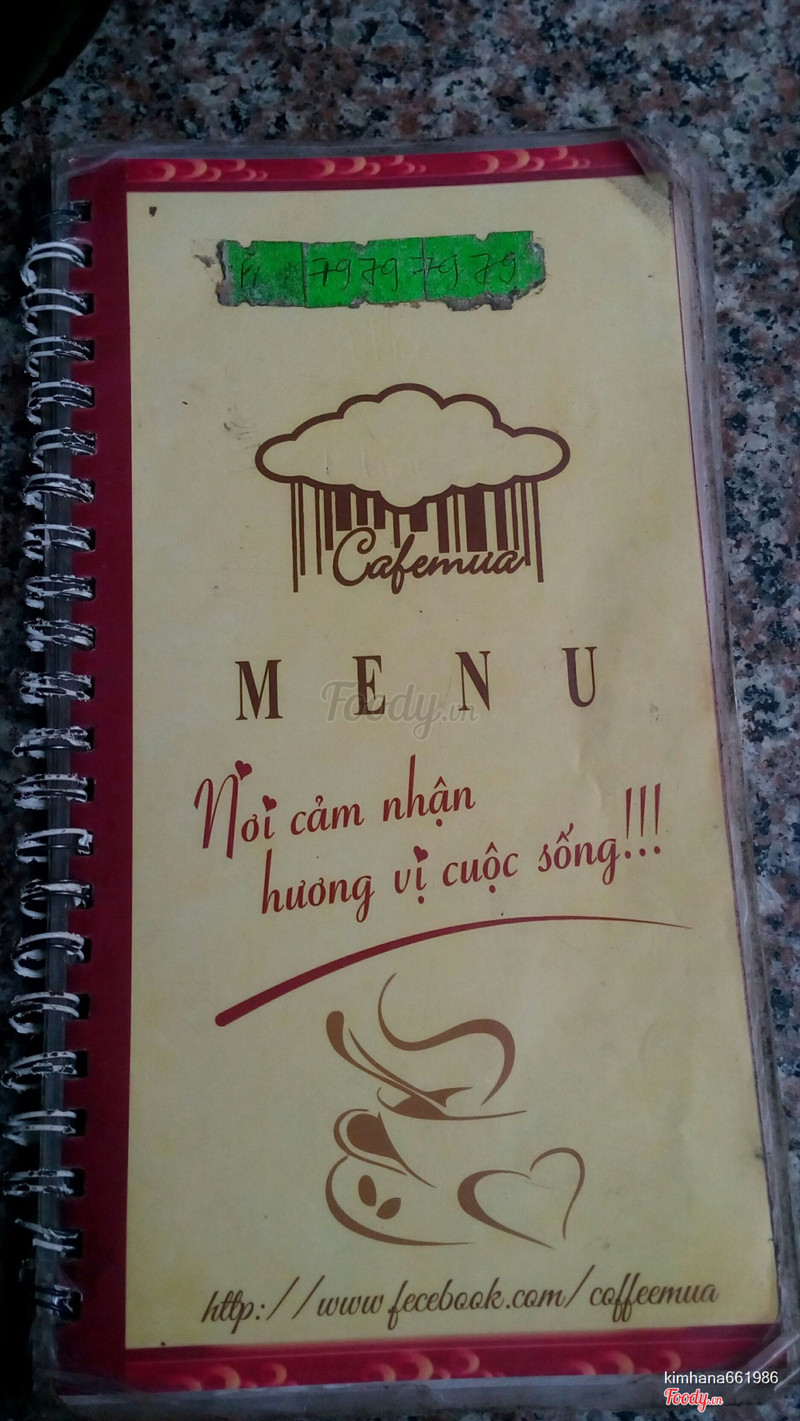 79797979
Cafemưa
MENU
Foody.vn
Nơi cảm nhận
hương vị cuộc sống!!!
http://www.fecebook.com/coffeemua
kimhana661986
Foody.vn